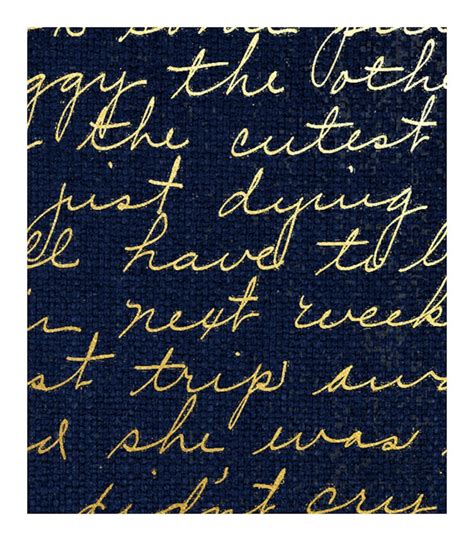 some
ggy the othe
the cutest
just dying
ll have to b
next week
st trip awa
d she was
didn't cry